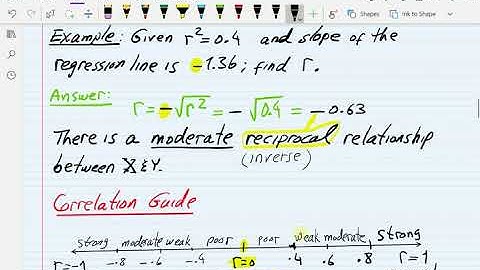 Shapes Ink to Shape
Example: Given r²=0.4 and slope of the
regression line is -1.36; find r.
Answer: r = -√r² = -√0.4 = -0.63
There is a moderate reciprocal relationship
(inverse)
between X & Y.
Correlation Guide
strong moderate weak poor poor weak moderate strong
r=-1 -.8 -.6 -.4 r=0 .4 .6 .8 r=1